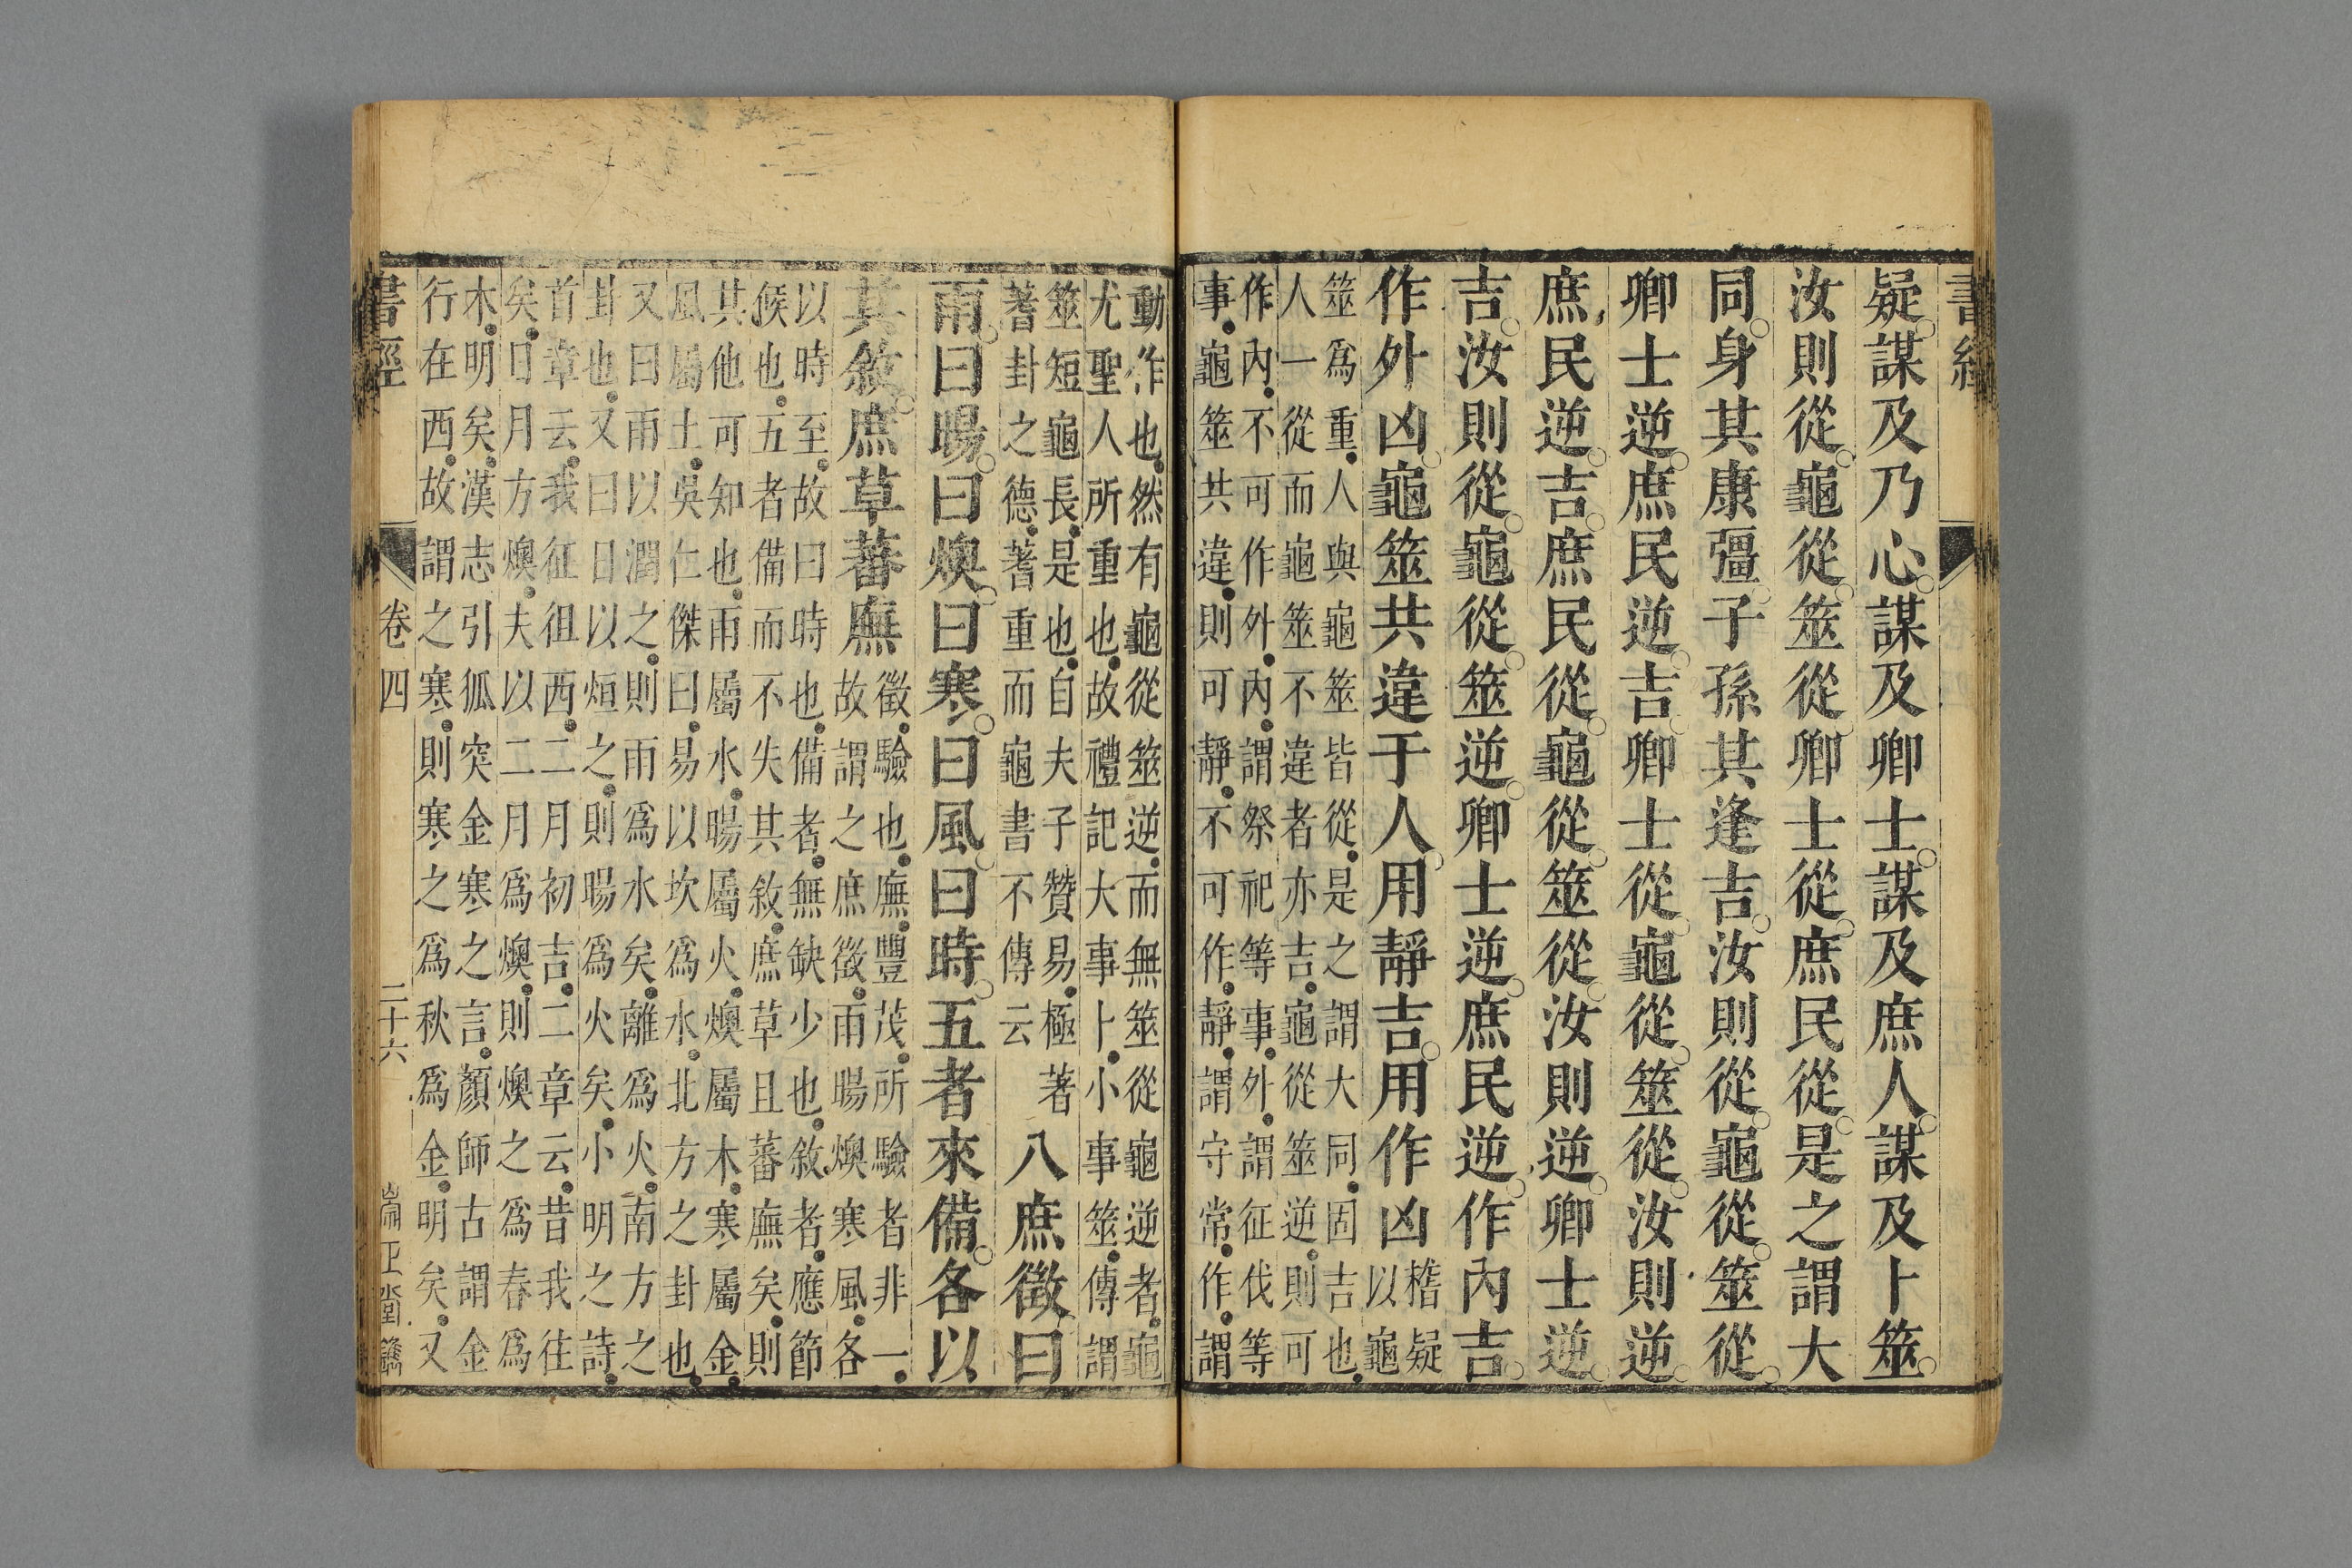 書經
疑謀及乃心謀及卿士謀及庶人謀及卜筮
汝則從龜從筮從卿士從庶民從是之謂大
同身其康彊子孫其逢吉汝則從龜從筮從
卿士逆庶民逆吉卿士從龜從筮從汝則逆
庶民逆吉庶民從龜從筮從汝則逆卿士逆
吉汝則從龜從筮逆卿士逆庶民逆作內吉
作外凶龜筮共違于人用靜吉用作凶
稽疑
以龜
筮爲重人與龜筮皆從是之謂大同固吉也
人一從而龜筮不違者亦吉龜從筮逆則可
作內不可作外內謂祭祀等事外謂征伐等
事龜筮共違則可靜不可作靜謂守常作謂
動作也然有龜從筮逆而無筮從龜逆者龜
尤聖人所重也故禮記大事卜小事筮傳謂
筮短龜長是也自夫子贊易極著
蓍卦之德蓍重而龜書不傳云
八庶徵曰
雨曰暘曰燠曰寒曰風曰時五者來備各以
其敘庶草蕃廡
徵驗也廡豐茂所驗者非一
故謂之庶徵雨暘燠寒風各
以時至故曰時也備者無缺少也敘者應節
候也五者備而不失其敘庶草且蕃廡矣則
其他可知也雨屬水暘屬火燠屬木寒屬金
風屬土吳仁傑曰易以坎爲水北方之卦也
又曰雨以潤之則雨爲水矣離爲火南方之
卦也又曰日以烜之則暘爲火矣小明之詩
首章云我征徂西二月初吉二章云昔我往
矣日月方燠夫以二月爲燠則燠之爲春爲
木明矣漢志引狐突金寒之言顏師古謂金
行在西故謂之寒則寒之爲秋爲金明矣又
書經
卷四
二十六
崇正堂鐫